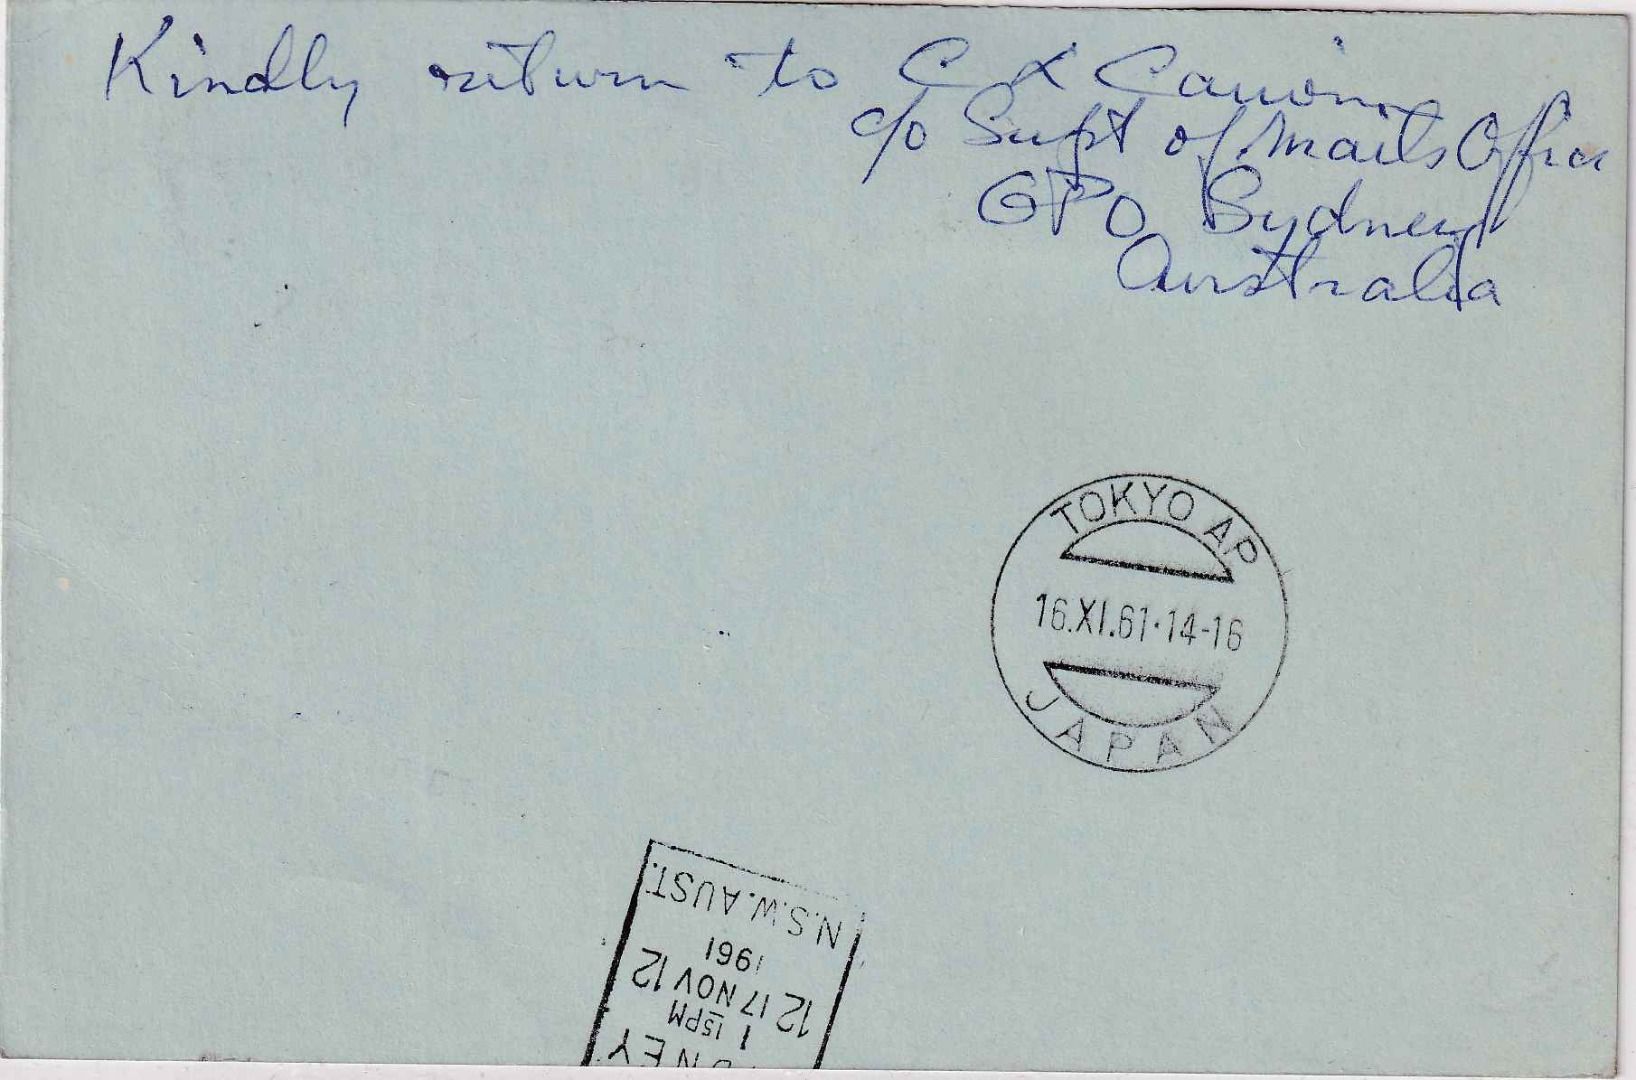 Kindly return to C L
c/o Supt of Mails Office
GPO Sydney
Australia
TOKYO AP
16.XI.61.14-16
JAPAN
DNEY
1 15PM
12 17 NOV 12
1961
N.S.W. AUST.